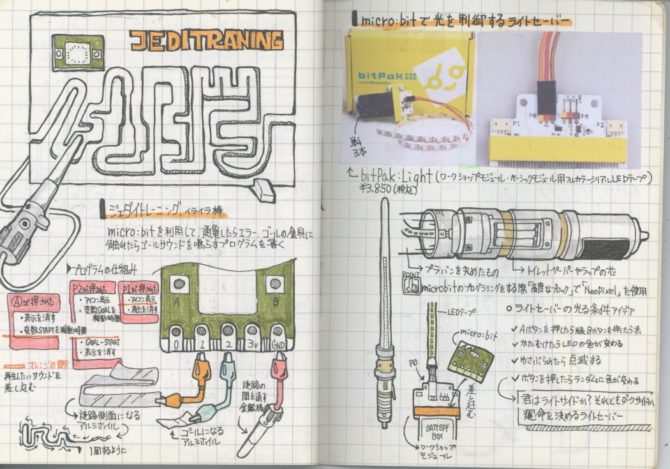 JEDITRANING
ジェダイトレーニング イライラ棒
micro:bitを利用して、通電したらエラー、ゴールの金属に
触れたらゴールサウンドを鳴らすプログラムを書く
プログラムの仕組み
Aが押された
・表示を消す
・変数STARTを稼動時間
P2が押された
・アイコン表示
・変数GOALを稼動時間
・GOAL-START
・表示を消す
P1が押された
・アイコン表示
・表示を消す
オレンジの間に
再生したいサウンドを
差し込む
A
B
0 1 2 3V GND
迷路側面になる
アルミホイル
ゴールになる
アルミホイル
迷路の
間を通す
金属棒
1周するように
micro:bitで光を制御するライトセーバー
bitPak:
単4
3本
P2
P0
P1
bitPak:Light(ワークショップモジュール・ベーシックモジュール用フルカラーシリアルLEDテープ)
¥3,850(税込)
プラバンを丸めたもの
トイレットペーパーやラップの芯
POINT
microbitのプログラミングをする際「高度なブロック」で「NeoPixel」を使用
LEDテープ
micro:bit
P0
差し込む
BATTERY
BOX
ワークショップ
モジュール
ライトセーバーの光る条件アイデア
✓ Aボタンを押したら緑、Bボタンを押したら赤
✓ かたむけたらLEDの色が変わる
✓ ゆさぶったら点滅する
✓ ボタンを押したらランダムに色が変わる
君はライトサイドか?それともダークサイドか
運命を決めるライトセーバー